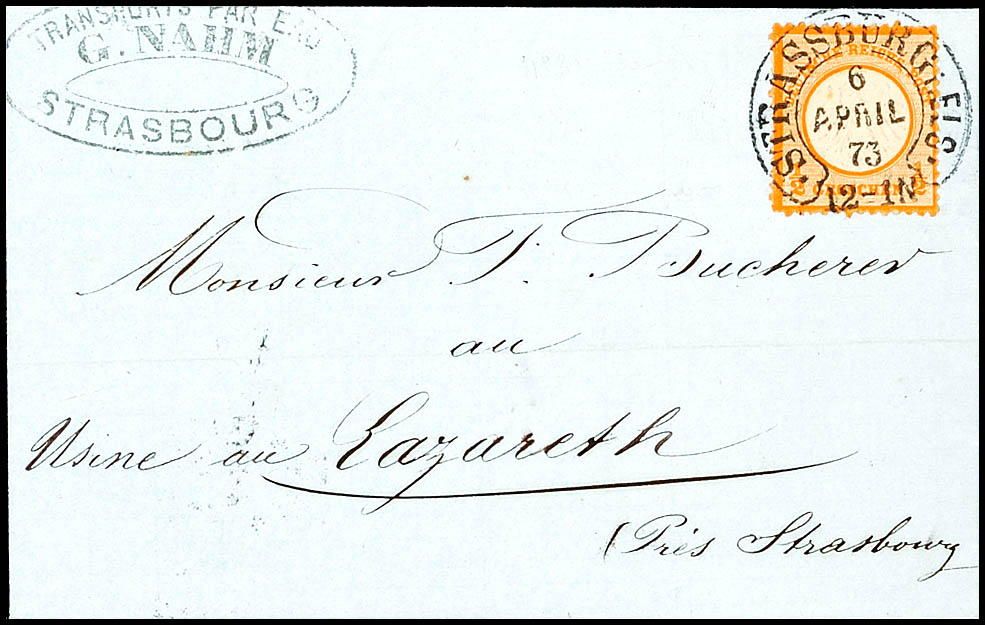 TRANSPORTS PAR EAU
G. NAHM
STRASBOURG
STRASSBURG i. ELS.
6
APRIL
73
12-1N
½ ½
Monsieur T. Bucherer
au
Usine au Lazareth
(Près Strasbourg